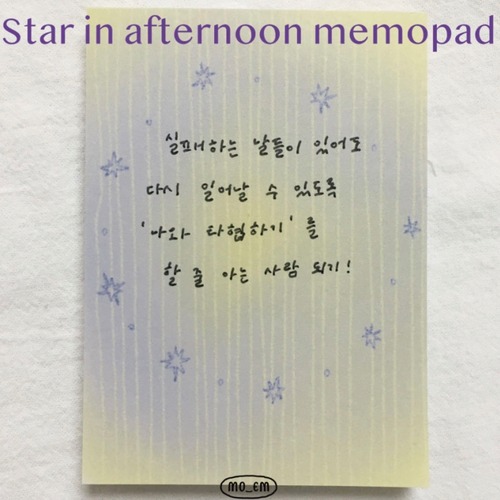 Star in afternoon memopad
실패하는 날들이 있어도
다시 일어날 수 있도록
'나와 타협하기'를
할 줄 아는 사람 되기!
MO_EM